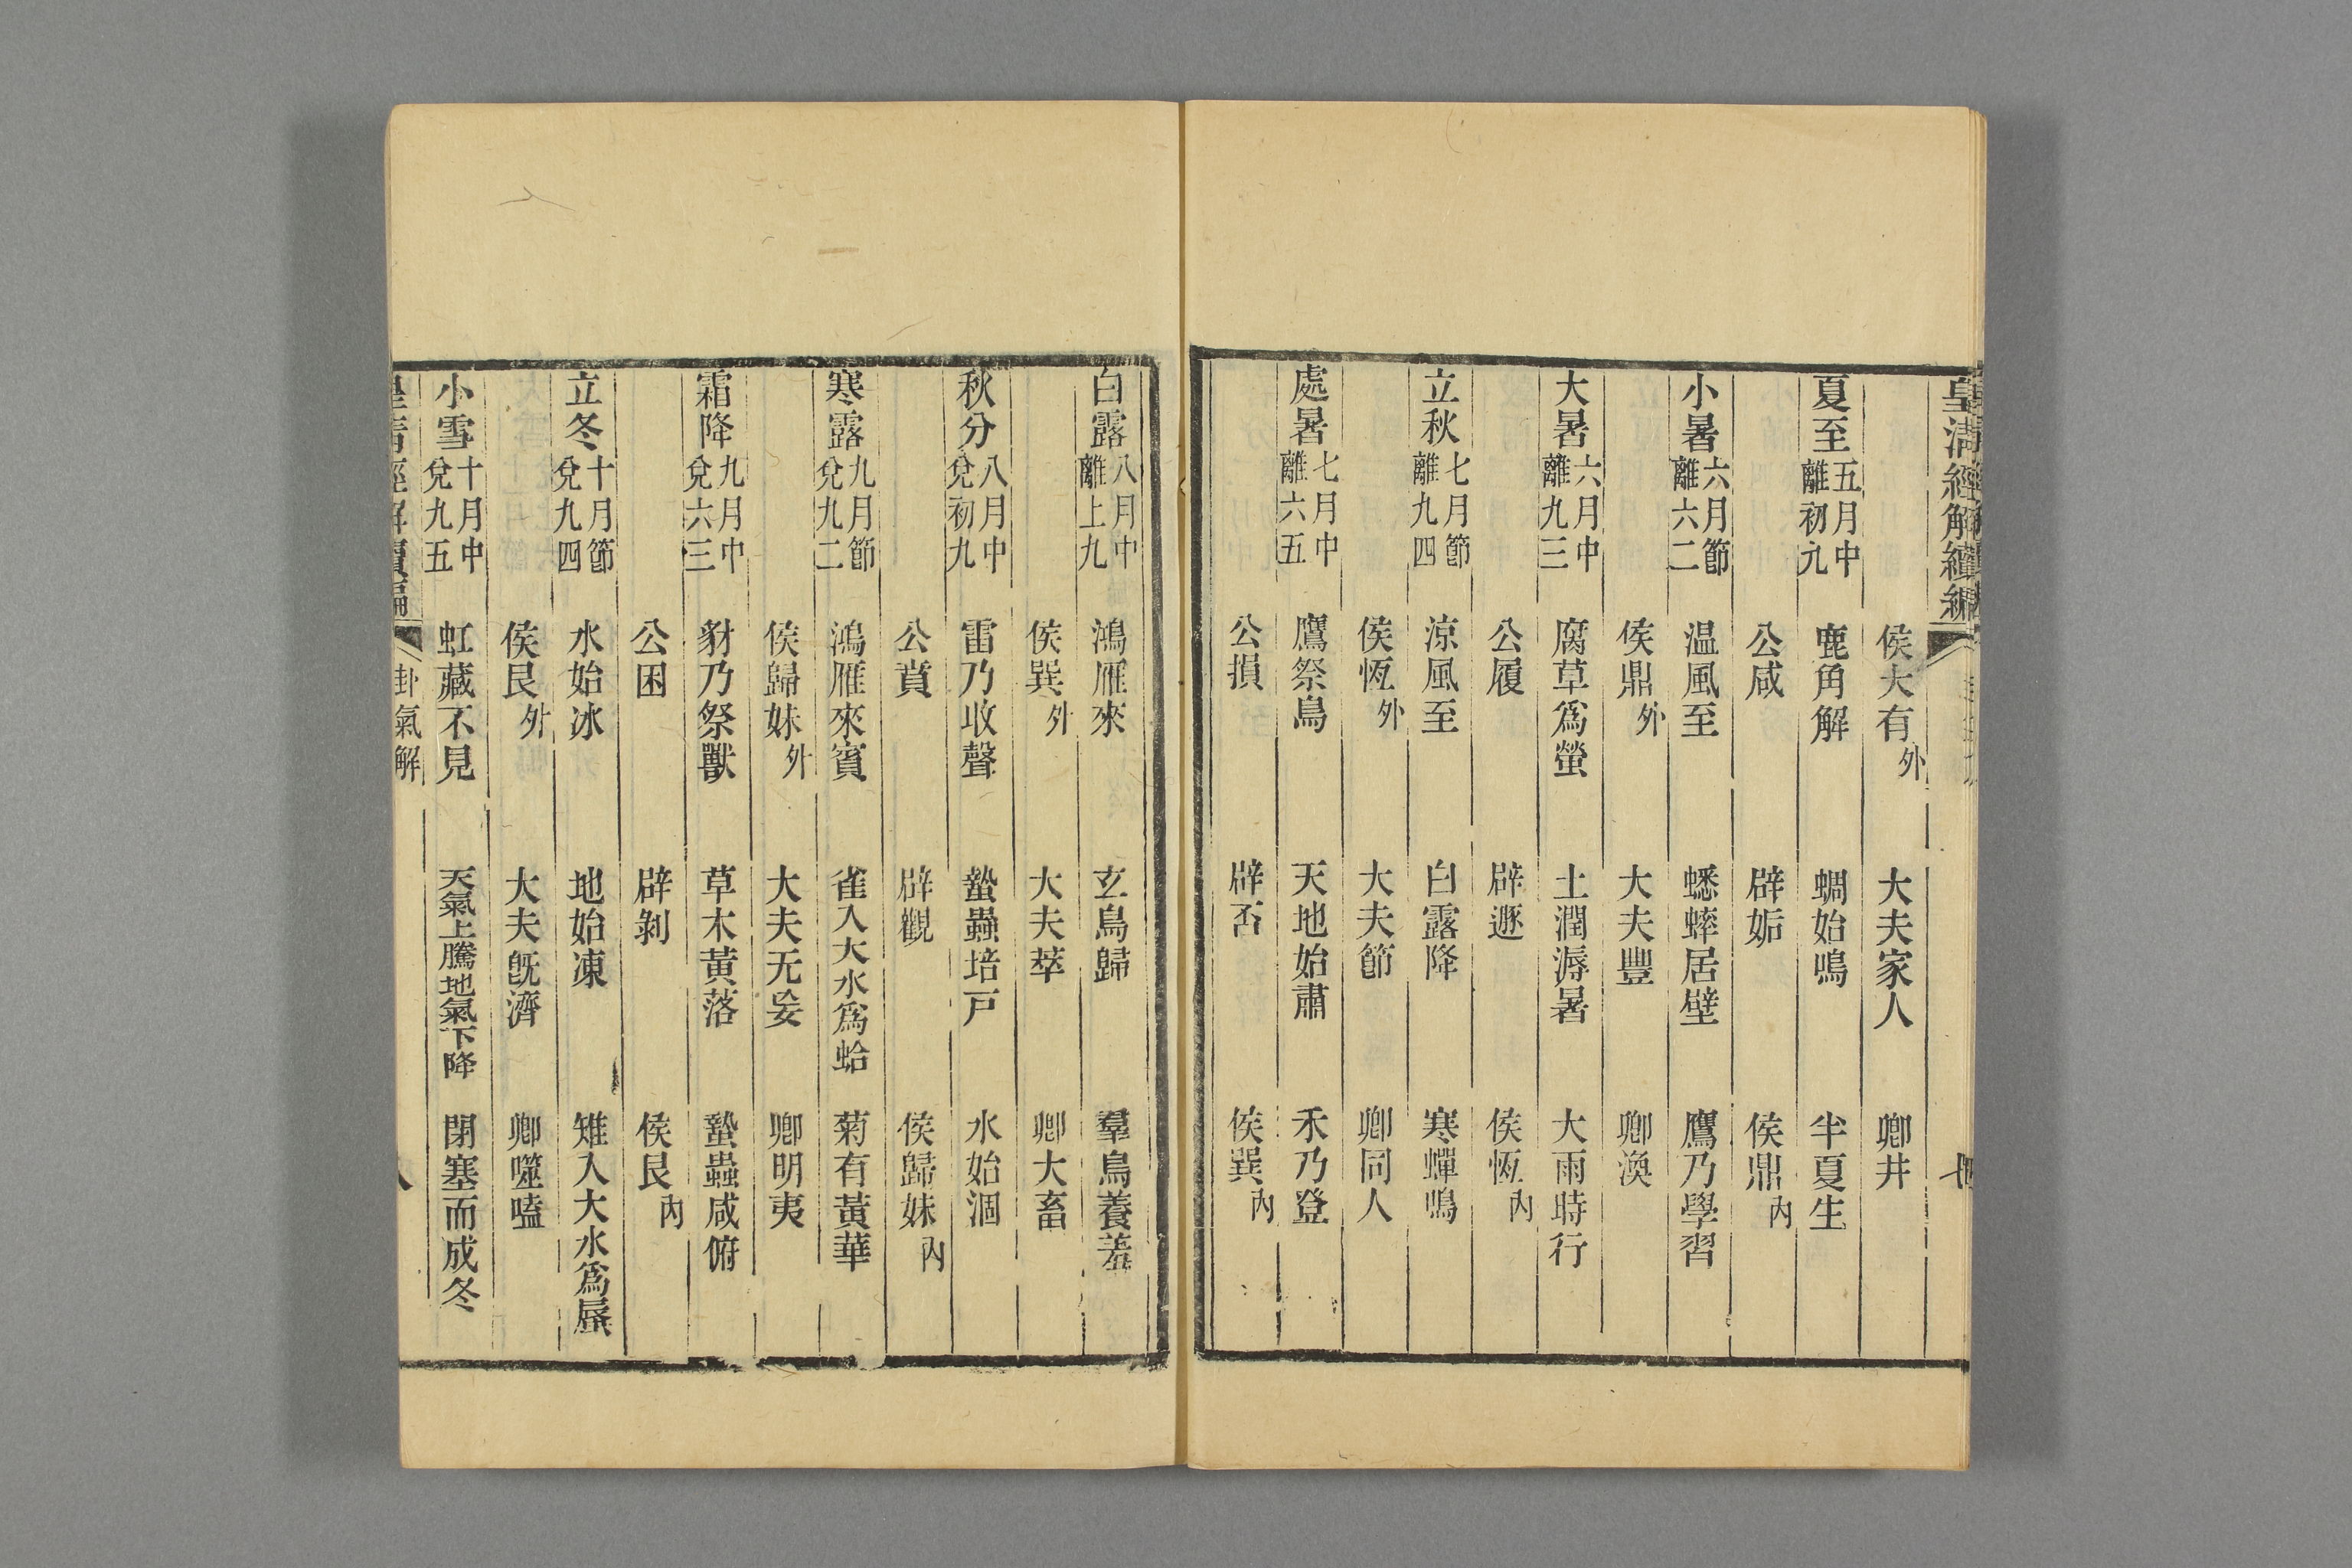 皇清經解續編
侯大有外 大夫家人 卿井
夏至五月中離初九 鹿角解 蜩始鳴 半夏生
公咸 辟姤 侯鼎內
小暑六月節離六二 温風至 蟋蟀居壁 鷹乃學習
侯鼎外 大夫豐 卿渙
大暑六月中離九三 腐草爲螢 土潤溽暑 大雨時行
公履 辟遯 侯恆內
立秋七月節離九四 涼風至 白露降 寒蟬鳴
侯恆外 大夫節 卿同人
處暑七月中離六五 鷹祭鳥 天地始肅 禾乃登
公損 辟否 侯巽內
白露八月中離上九 鴻雁來 玄鳥歸 羣鳥養羞
侯巽外 大夫萃 卿大畜
秋分八月中兌初九 雷乃收聲 蟄蟲培戸 水始涸
公賁 辟觀 侯歸妹內
寒露九月節兌九二 鴻雁來賓 雀入大水爲蛤 菊有黃華
侯歸妹外 大夫无妄 卿明夷
霜降九月中兌六三 豺乃祭獸 草木黃落 蟄蟲咸俯
公困 辟剝 侯艮內
立冬十月節兌九四 水始冰 地始凍 雉入大水爲蜃
侯艮外 大夫旣濟 卿噬嗑
小雪十月中兌九五 虹藏不見 天氣上騰地氣下降 閉塞而成冬
皇清經解續編 卦氣解 八